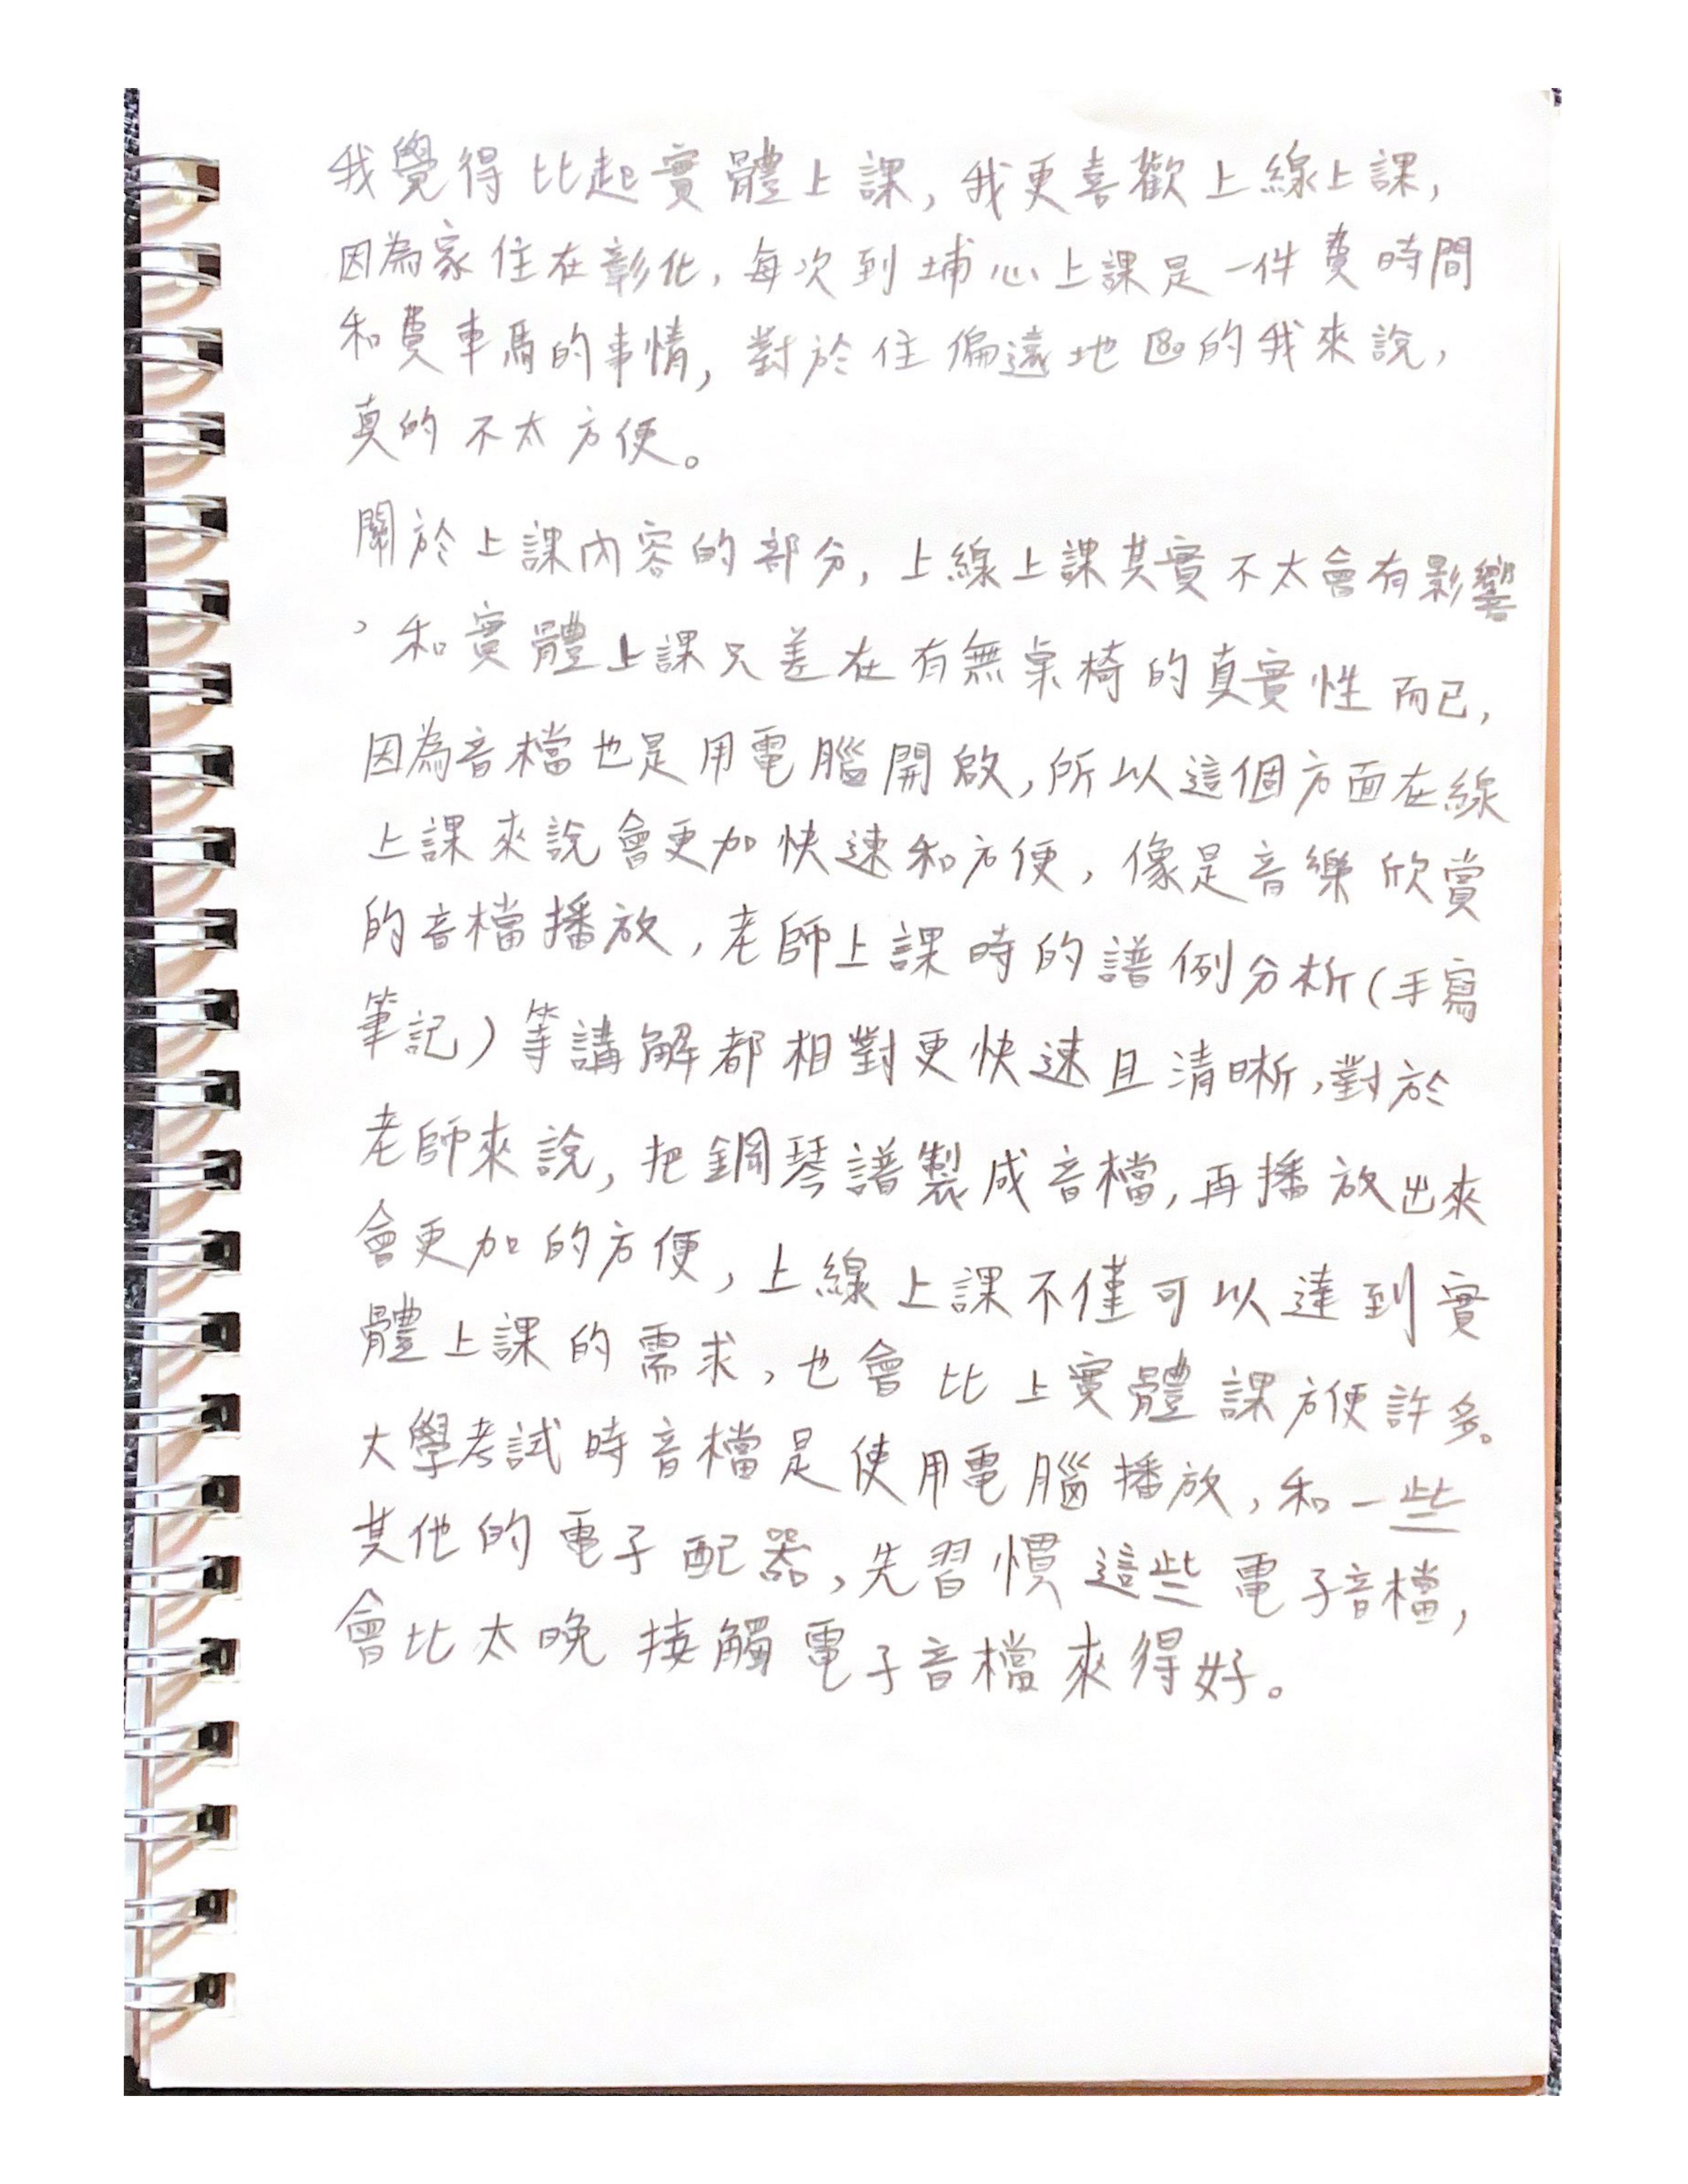 我覺得比起實體上課，我更喜歡上線上課，
因為家住在彰化，每次到埔心上課是一件費時間
和費車馬的事情，對於住偏遠地區的我來說，
真的不太方便。
關於上課內容的部分，上線上課其實不太會有影響
，和實體上課只差在有無桌椅的真實性而已，
因為音檔也是用電腦開啟，所以這個方面在線
上課來說會更加快速和方便，像是音樂欣賞
的音檔播放，老師上課時的譜例分析（手寫
筆記）等講解都相對更快速且清晰，對於
老師來說，把鋼琴譜製成音檔，再播放出來
會更加的方便，上線上課不僅可以達到實
體上課的需求，也會比上實體課方便許多。
大學考試時音檔是使用電腦播放，和一些
其他的電子配器，先習慣這些電子音檔，
會比太晚接觸電子音檔來得好。